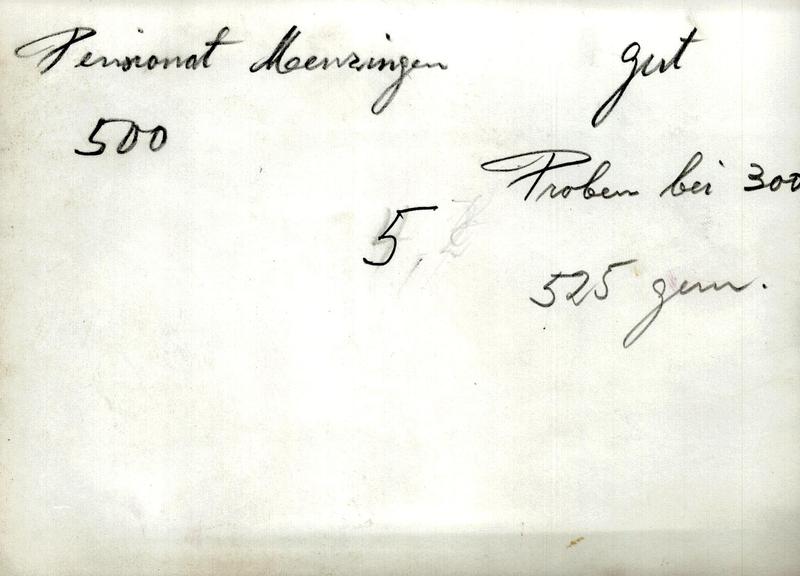 Pensionat Menzingen gut
500
Proben bei 300
5,
525 gem.